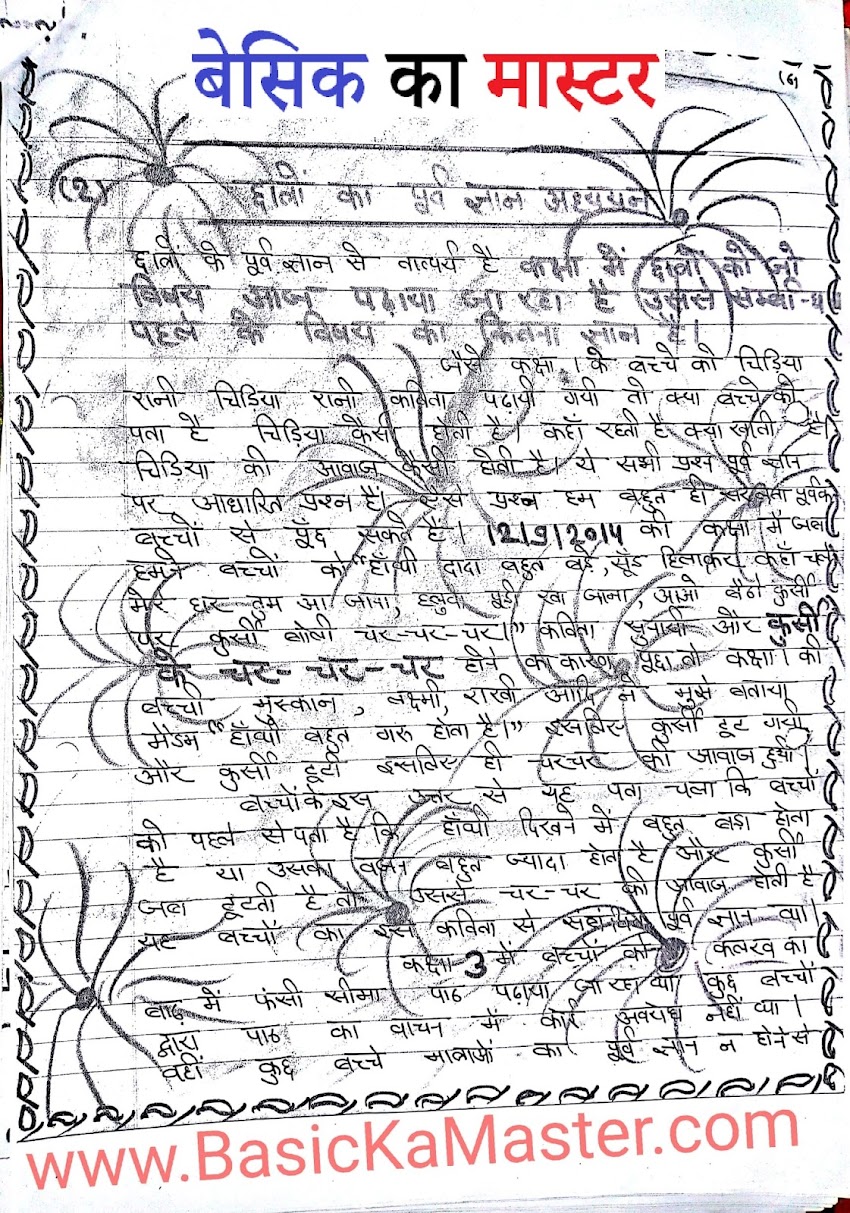 बेसिक का मास्टर
(2) छात्रों का पूर्व ज्ञान अध्ययन
छात्रों के पूर्व ज्ञान से तात्पर्य है कक्षा में छात्रों को जो
विषय आज पढ़ाया जा रहा है उससे सम्बन्धित
पहले के विषय का कितना ज्ञान है।
जैसे कक्षा 1 के बच्चे को चिडिया
रानी चिडिया रानी कविता पढ़ायी गयी तो क्या बच्चे को
पता है चिडिया कैसी होती है। कहाँ रहती है क्या खाती है।
चिडिया की आवाज कैसी होती है। ये सभी प्रश्न पूर्व ज्ञान
पर आधारित प्रश्न हैं। ऐसे प्रश्न हम बहुत ही सरलता पूर्वक
बच्चों से पूँछ सकते हैं। 12/9/2014 को कक्षा में जब
हमने बच्चों को "हाँथी दादा बहुत बडे, सूँड हिलाकर कहाँ चले
मेरे घर तुम आ जाना, हलुवा पूडी खा जाना, आओ बैठो कुर्सी
पर कुर्सी बोली चर-चर-चर।" कविता सुनायी और कुर्सी
के चर-चर-चर होने का कारण पूछा तो कक्षा 1 की
बच्ची मुस्कान, लक्ष्मी, राखी आदि ने मुझे बताया
मैडम "हाँथी बहुत गरू होता है।" इसलिए कुर्सी टूट गयी
और कुर्सी टूटी इसलिए ही चरचर की आवाज हुयी।
बच्चों के इस उत्तर से यह पता चला कि बच्चों
को पहले से पता है कि हाँथी दिखने में बहुत बडा होता
है या उसका वजन बहुत ज्यादा होता है और कुर्सी
जब टूटती है तो उससे चर-चर की आवाज होती है
यह बच्चों का इस कविता से सम्बन्धित पूर्व ज्ञान था।
कक्षा-3 में बच्चों को कलरव का
बाढ़ में फंसी सीमा पाठ पढ़ाया जा रहा था कुछ बच्चों
द्वारा पाठ का वाचन में कोई अवरोध नहीं था।
वहीं कुछ बच्चे मात्राओं का पूर्व ज्ञान न होने से
www.BasicKaMaster.com